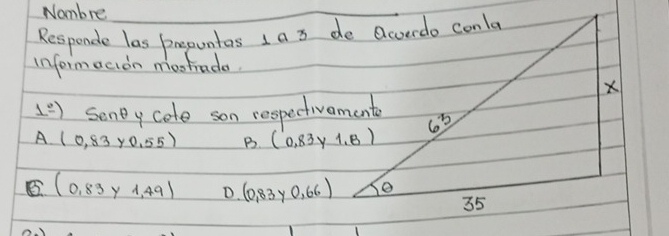 Nombre
Responde las preguntas 1 a 3 de Acuerdo con la
información mostrada.
1º) Senθ y Cotθ son respectivamente
A. (0,83 y 0,55)
B. (0,83 y 1.8)
C. (0,83 y 1,49)
D. (0,83 y 0,66)
63
x
θ
35